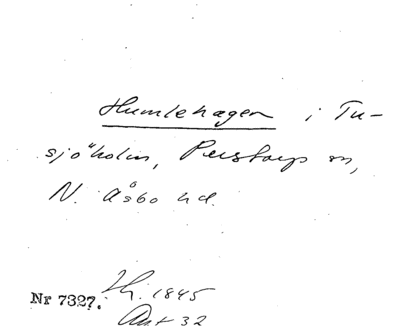 Humlehagen i Tu-
sjöholm, Perstorps sn,
N. Åsbo hd.
Nr 7327. Hj. 1845
Ant 32